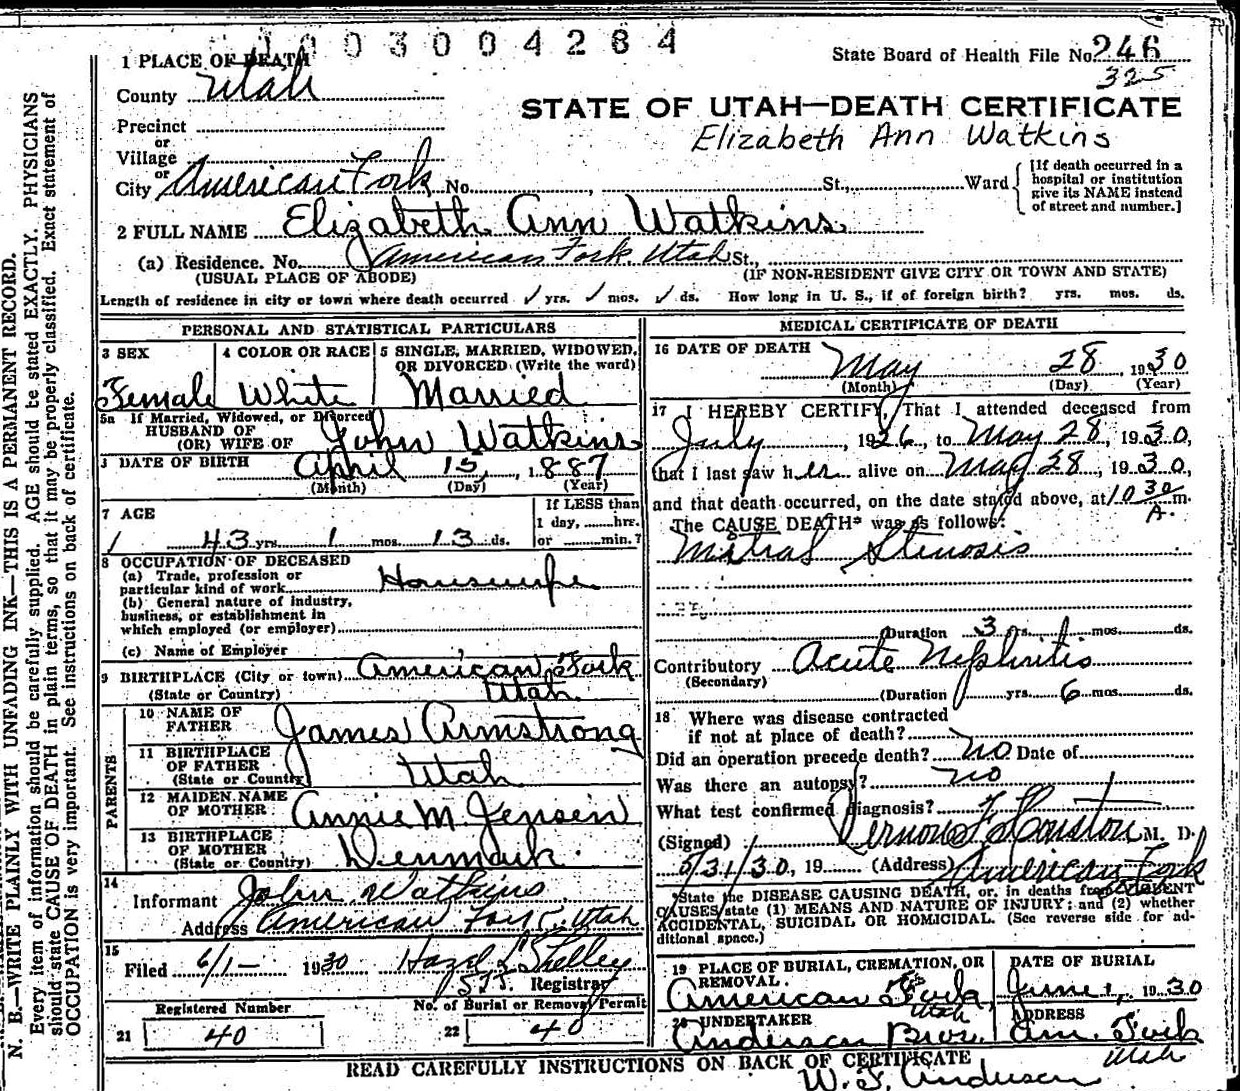 1003004284
State Board of Health File No. 246
325
1 PLACE OF DEATH
County Utah
STATE OF UTAH—DEATH CERTIFICATE
Elizabeth Ann Watkins
Precinct
or
Village
or
City American Fork No. , St., Ward
[If death occurred in a hospital or institution give its NAME instead of street and number.]
2 FULL NAME Elizabeth Ann Watkins
(a) Residence. No. American Fork Utah St.,
(USUAL PLACE OF ABODE) (IF NON-RESIDENT GIVE CITY OR TOWN AND STATE)
Length of residence in city or town where death occurred ✓ yrs. ✓ mos. ✓ ds. How long in U. S., if of foreign birth? yrs. mos. ds.
PERSONAL AND STATISTICAL PARTICULARS
3 SEX
Female
4 COLOR OR RACE
White
5 SINGLE, MARRIED, WIDOWED, OR DIVORCED (Write the word)
Married
5a If Married, Widowed, or Divorced
HUSBAND OF
(OR) WIFE OF John Watkins
DATE OF BIRTH April 15, 1887
(Month) (Day) (Year)
7 AGE
43 yrs. 1 mos. 13 ds.
If LESS than
1 day, hrs.
or min.?
8 OCCUPATION OF DECEASED
(a) Trade, profession or
particular kind of work Housewife
(b) General nature of industry,
business, or establishment in
which employed (or employer)
(c) Name of Employer
9 BIRTHPLACE (City or town) American Fork
(State or Country) Utah
PARENTS
10 NAME OF
FATHER James Armstrong
11 BIRTHPLACE
OF FATHER
(State or Country) Utah
12 MAIDEN NAME
OF MOTHER Annie M. Jensen
13 BIRTHPLACE
OF MOTHER
(State or Country) Denmark
14
Informant John Watkins
Address American Fork Utah
15
Filed 6/1- 1930 Hazel L Shelley
Registrar
Registered Number
21 40
No. of Burial or Removal Permit
22 40
MEDICAL CERTIFICATE OF DEATH
16 DATE OF DEATH May 28, 1930
(Month) (Day) (Year)
17 I HEREBY CERTIFY, That I attended deceased from
July, 1926, to May 28, 1930,
that I last saw her alive on May 28, 1930,
and that death occurred, on the date stated above, at 10 30 m.
A.
The CAUSE DEATH* was as follows:
Mitral Stenosis
Duration 3 yrs. mos. ds.
Contributory Acute Nephritis
(Secondary)
(Duration yrs. 6 mos. ds.
18 Where was disease contracted
if not at place of death?
Did an operation precede death? no Date of
Was there an autopsy? no
What test confirmed diagnosis?
(Signed) Vernon F Houston M. D.
5/31/30, 19 (Address) American Fork
*State the DISEASE CAUSING DEATH, or, in deaths from VIOLENT
CAUSES, state (1) MEANS AND NATURE OF INJURY; and (2) whether
ACCIDENTAL, SUICIDAL OR HOMICIDAL. (See reverse side for ad-
ditional space.)
19 PLACE OF BURIAL, CREMATION, OR
REMOVAL.
American Fork,
Utah
DATE OF BURIAL
June 1, 1930
20 UNDERTAKER
Anderson Bros.
ADDRESS
Am. Fork
Utah
READ CAREFULLY INSTRUCTIONS ON BACK OF CERTIFICATE
W. J. Anderson
N. B.—WRITE PLAINLY WITH UNFADING INK—THIS IS A PERMANENT RECORD.
Every item of information should be carefully supplied. AGE should be stated EXACTLY. PHYSICIANS
should state CAUSE OF DEATH in plain terms, so that it may be properly classified. Exact statement of
OCCUPATION is very important. See instructions on back of certificate.